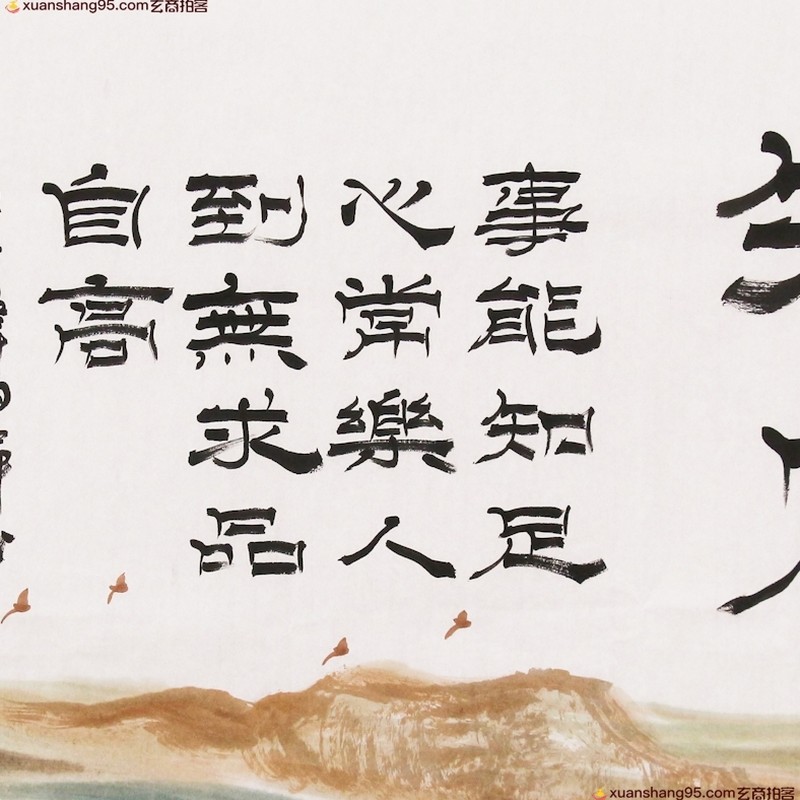 xuanshang95.com玄商拍客
事能知足
心常樂人
到無求品
自高
xuanshang95.com玄商拍客